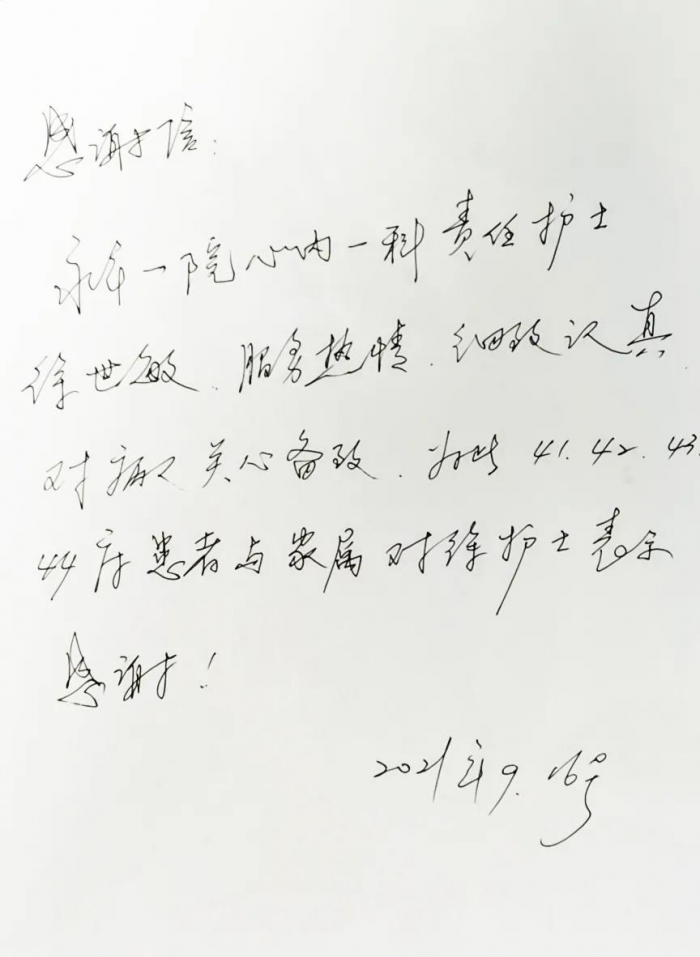 感谢信:
永年一院心内一科责任护士
徐世敏、服务热情、细致认真
对病人关心备致、为此41.42.43.
44床患者与家属对徐护士表示
感谢!
2021年9.16号